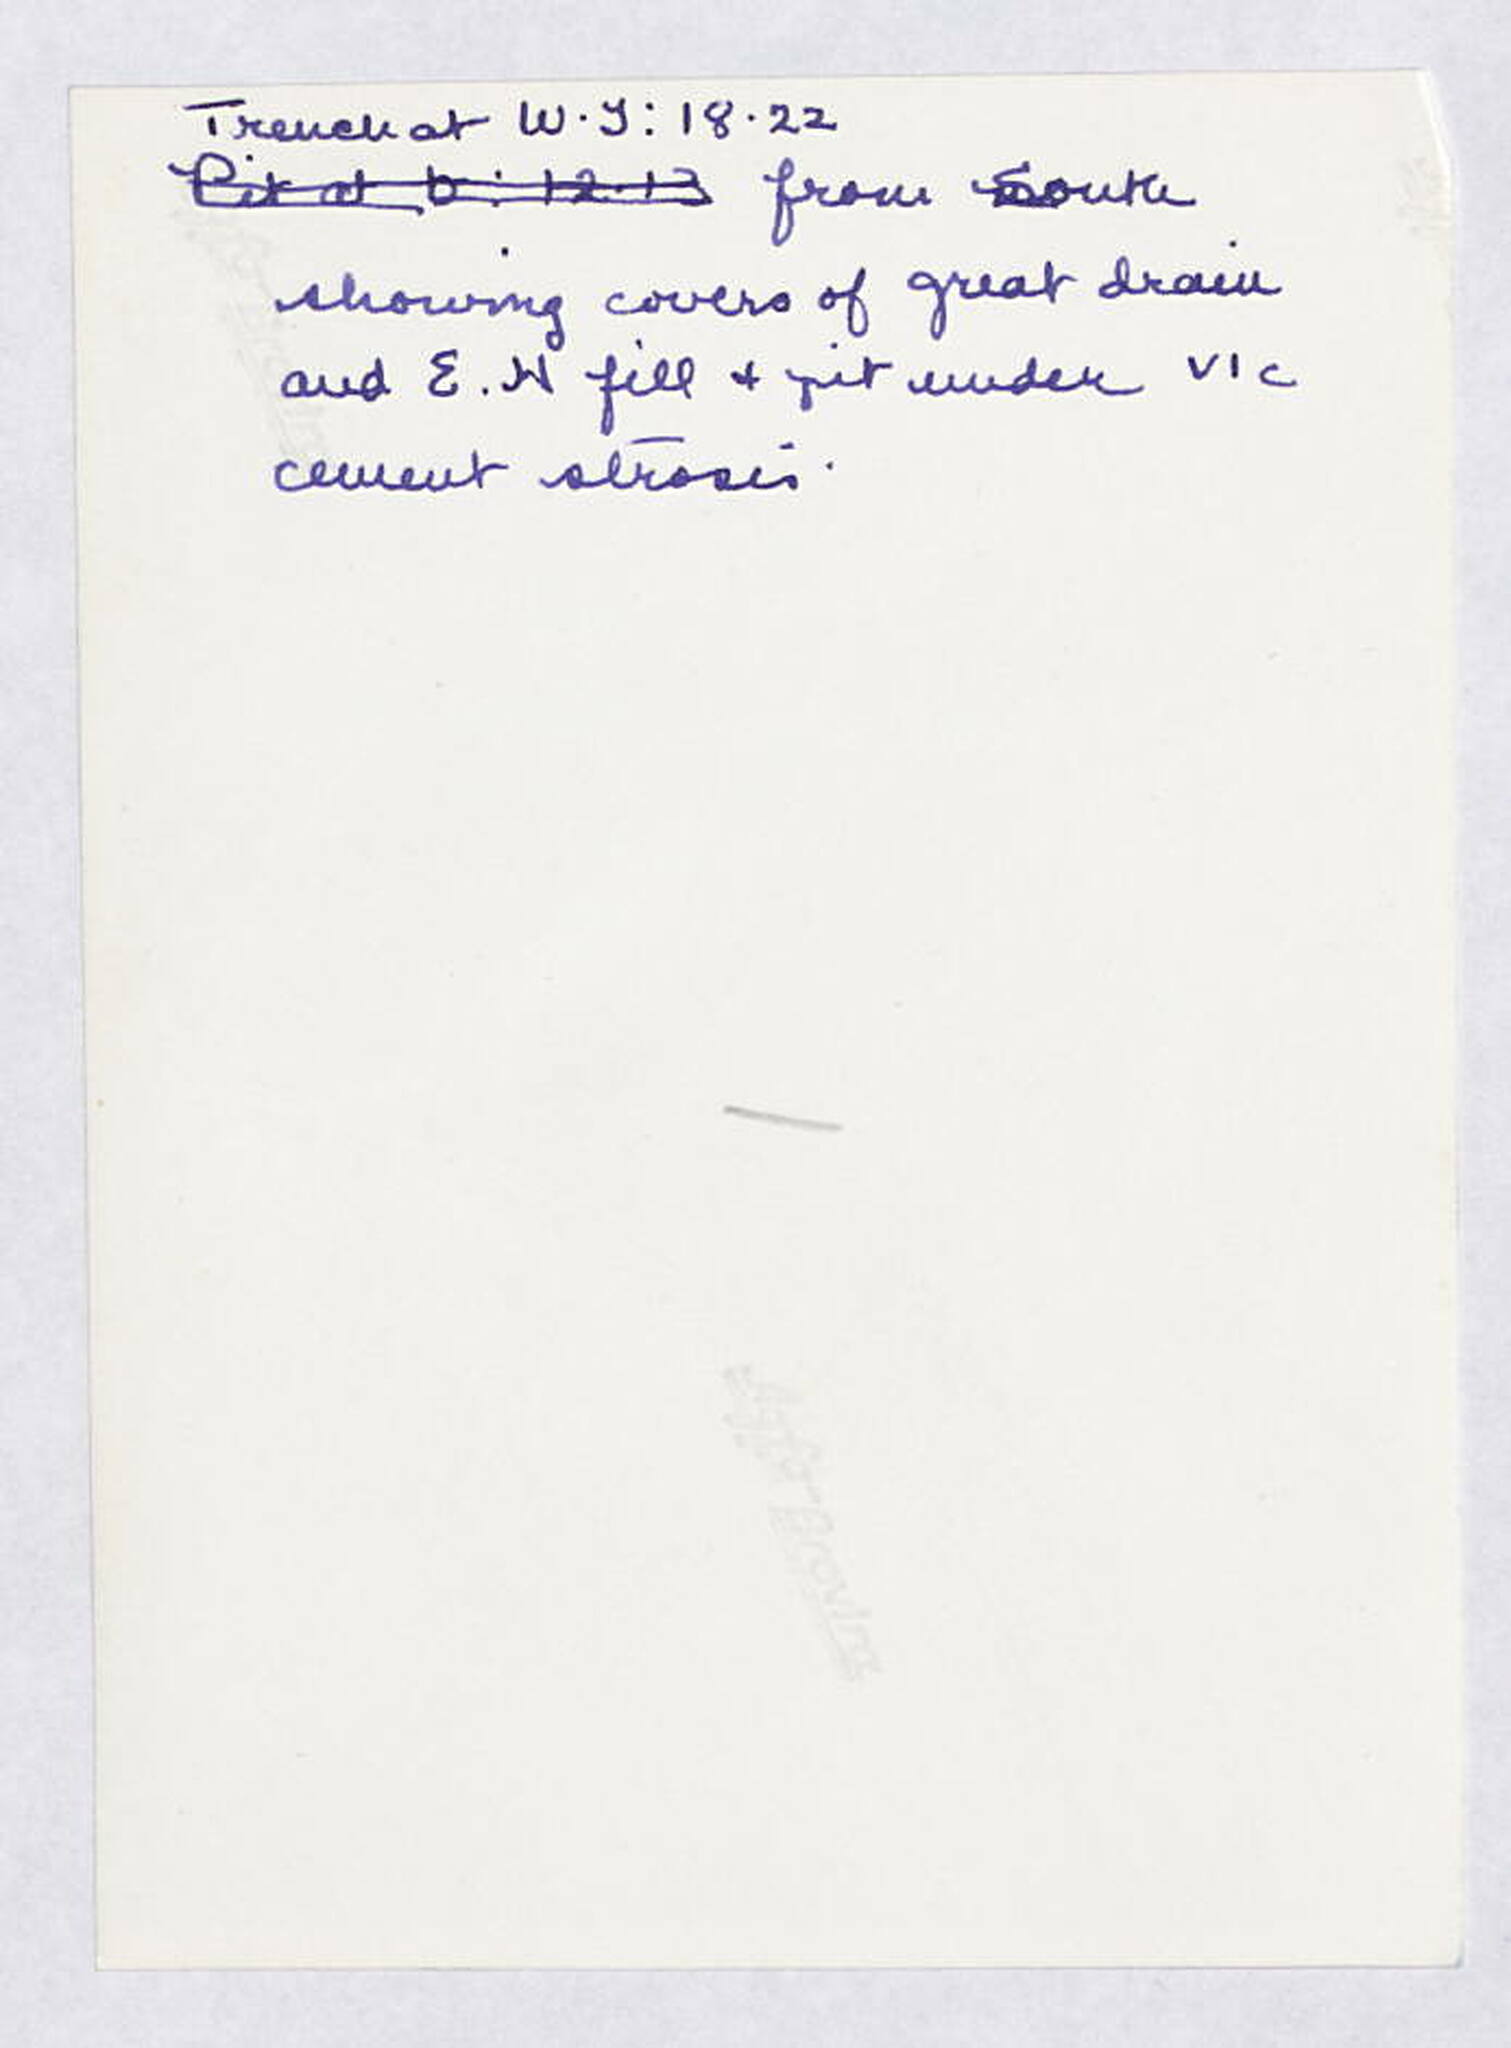 Trench at W·J: 18·22
Pit at b: 12·13 from South
showing covers of great drain
and E.W fill + pit under VIc
cement strosis.